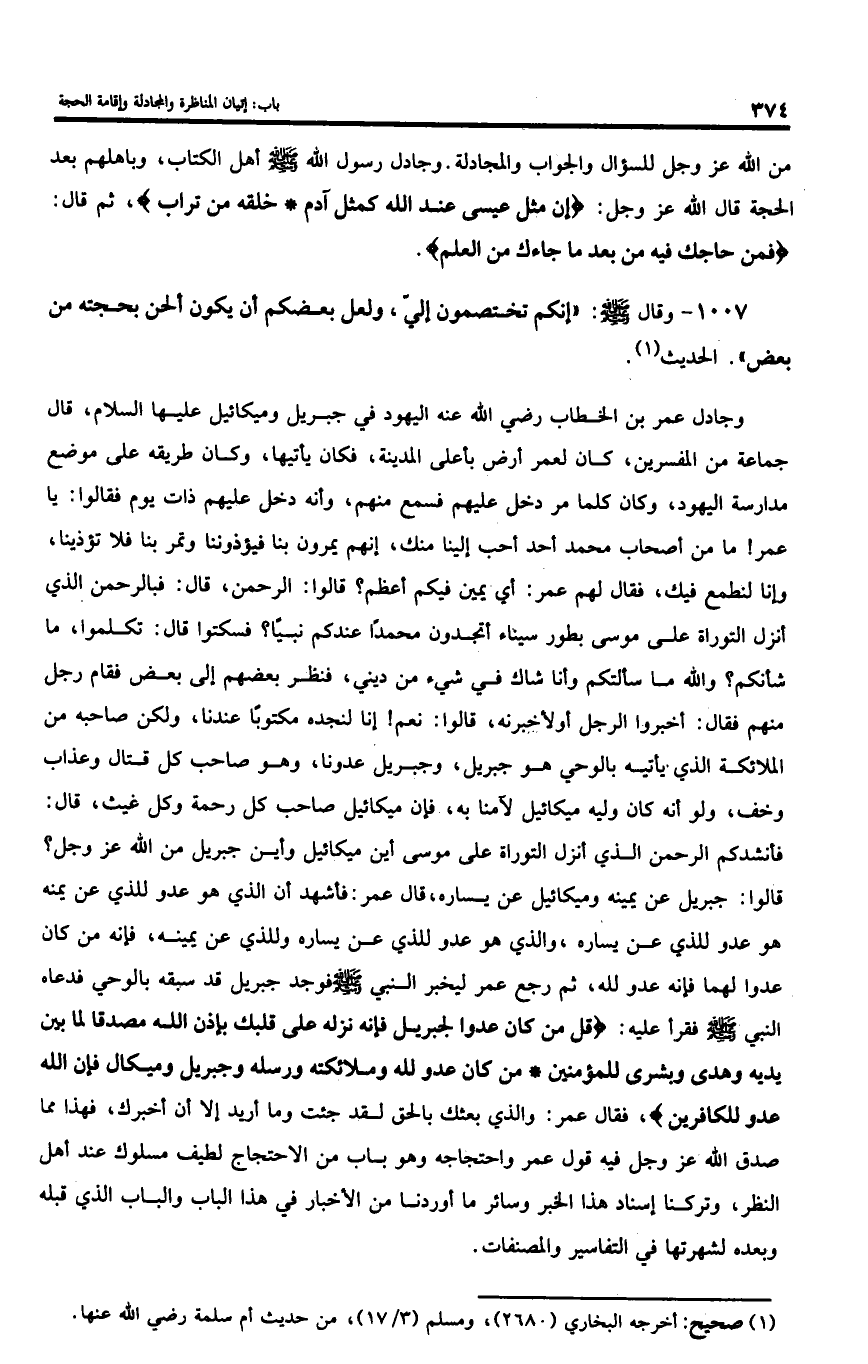 ٣٧٤ باب: إتيان المناظرة والمجادلة وإقامة الحجة
من الله عز وجل للسؤال والجواب والمجادلة. وجادل رسول الله ﷺ أهل الكتاب، وباهلهم بعد
الحجة قال الله عز وجل: ﴿إن مثل عيسى عند الله كمثل آدم * خلقه من تراب﴾، ثم قال:
﴿فمن حاجك فيه من بعد ما جاءك من العلم﴾.
١٠٠٧- وقال ﷺ: «إنكم تختصمون إليّ، ولعل بعضكم أن يكون ألحن بحجته من
بعض». الحديث(١).
وجادل عمر بن الخطاب رضي الله عنه اليهود في جبريل وميكائيل عليها السلام، قال
جماعة من المفسرين، كان لعمر أرض بأعلى المدينة، فكان يأتيها، وكان طريقه على موضع
مدارسة اليهود، وكان كلما مر دخل عليهم فسمع منهم، وأنه دخل عليهم ذات يوم فقالوا: يا
عمر! ما من أصحاب محمد أحد أحب إلينا منك، إنهم يمرون بنا فيؤذوننا وتمر بنا فلا تؤذينا،
وإنا لنطمع فيك، فقال لهم عمر: أي يمين فيكم أعظم؟ قالوا: الرحمن، قال: فبالرحمن الذي
أنزل التوراة على موسى بطور سيناء أتجدون محمدًا عندكم نبيًا؟ فسكتوا قال: تكلموا، ما
شأنكم؟ والله ما سألتكم وأنا شاك في شيء من ديني، فنظر بعضهم إلى بعض فقام رجل
منهم فقال: أخبروا الرجل أولأخبرنه، قالوا: نعم! إنا لنجده مكتوبًا عندنا، ولكن صاحبه من
الملائكة الذي يأتيه بالوحي هو جبريل، وجبريل عدونا، وهو صاحب كل قتال وعذاب
وخف، ولو أنه كان وليه ميكائيل لآمنا به، فإن ميكائيل صاحب كل رحمة وكل غيث، قال:
فأنشدكم الرحمن الذي أنزل التوراة على موسى أين ميكائيل وأين جبريل من الله عز وجل؟
قالوا: جبريل عن يمينه وميكائيل عن يساره،قال عمر:فأشهد أن الذي هو عدو للذي عن يمنه
هو عدو للذي عن يساره ،والذي هو عدو للذي عن يساره وللذي عن يمينه، فإنه من كان
عدوا لهما فإنه عدو لله، ثم رجع عمر ليخبر النبي ﷺفوجد جبريل قد سبقه بالوحي فدعاه
النبي ﷺ فقرأ عليه: ﴿قل من كان عدوا لجبريل فإنه نزله على قلبك بإذن الله مصدقا لما بين
يديه وهدى وبشرى للمؤمنين * من كان عدو لله وملائكته ورسله وجبريل وميكال فإن الله
عدو للكافرين﴾، فقال عمر: والذي بعثك بالحق لقد جئت وما أريد إلا أن أخبرك، فهذا مما
صدق الله عز وجل فيه قول عمر واحتجاجه وهو باب من الاحتجاج لطيف مسلوك عند أهل
النظر، وتركنا إسناد هذا الخبر وسائر ما أوردنا من الأخبار في هذا الباب والباب الذي قبله
وبعده لشهرتها في التفاسير والمصنفات.
(١) صحيح: أخرجه البخاري (٢٦٨٠)، ومسلم (١٧/٣)، من حديث أم سلمة رضي الله عنها.